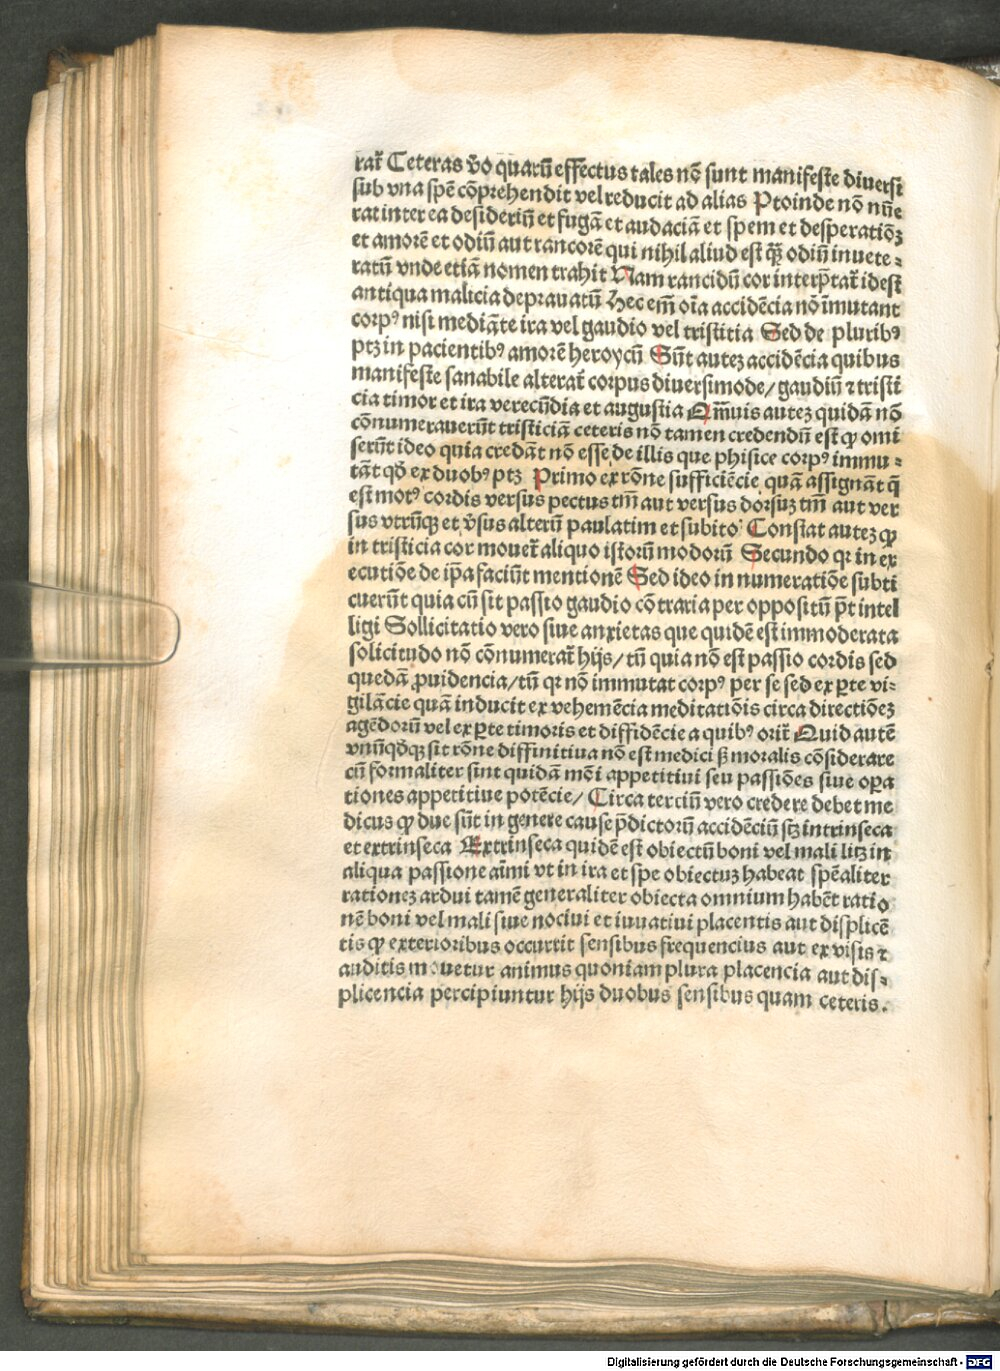 rat᷑ Ceteras v̄o quarū effectus tales nō sunt manifeste diuersi
sub vna spē cōprehendit vel reducit ad alias Proinde nō nūe
rat inter ea desideriū et fugā et audaciā et spem et desperatiōꝫ
et amorē et odiū aut rancorē qui nihil aliud est q̄ꝫ odiū inuete⸗
ratū vnde etiā nomen trahit Nam rancidū cor interp̄tat᷑ idest
antiqua malicia deprauatū Hec em̄ oīa accidēcia nō īmutant
corpꝰ nisi mediāte ira vel gaudio vel tristitia Sed de pluribꝰ
ptꝫ in pacientibꝰ amorē heroycū Sūt autez accidēcia quibus
manifeste sanabile alterat᷑ corpus diuersimode/ gaudiū ⁊ tristi
cia timor et ira verecūdia et augustia Qm̄uis autez quidā nō
cōnumerauerūt tristiciā ceteris nō tamen credendū est ꝙ omi
serūt ideo quia credāt nō esse de illis que phisice corpꝰ immu⸗
tāt qd̄ ex duobꝰ ptꝫ Primo ex rōne sufficiēcie quā assignāt q̄
est motꝰ cordis versus pectus tm̄ aut versus dorsuꝫ tm̄ aut ver
sus vtrūqꝫ et v̄sus alterū paulatim et subito: Constat autez ꝙ
in tristicia cor mouet᷑ aliquo istorū modorū Secundo qꝛ in ex
ecutiōe de ip̄a faciūt mentionē Sed ideo in numeratiōe subti
cuerūt quia cū sit passio gaudio cōtraria per oppositū p̄t intel
ligi Sollicitatio vero siue anxietas que quidē est immoderata
solicitudo nō cōnumerat᷑ hijs/ tū quia nō est passio cordis sed
quedā ꝓuidencia/ tū qꝛ nō immutat corpꝰ per se sed ex ꝑte vi⸗
gilācie quā inducit ex vehemēcia meditatiōis circa directiōeꝫ
agēdorū vel ex ꝑte timoris et diffidēcie a quibꝰ orit᷑ Quid autē
vnūqd̄qꝫ sit rōne diffinitiua nō est medici sꝫ moralis cōsiderare
cū formaliter sint quidā mōi appetitiui seu passiōes siue oꝑa
tiones appetitiue potēcie/ Circa terciū vero credere debet me
dicus ꝙ due sūt in genere cause p̄dictorū accidēciū scꝫ intrinseca
et extrinseca Extrinseca quidē est obiectū boni vel mali licꝫ in
aliqua passione aīmi vt in ira et spe obiectuꝫ habeat spēaliter
rationez ardui tamē generaliter obiecta omnium habēt ratio
nē boni vel mali siue nociui et iuuatiui placentis aut displicē
tis ꝙ exterioribus occurrit sensibus frequencius aut ex visis ⁊
auditis mouetur animus quoniam plura placencia aut dis⸗
plicencia percipiuntur hijs duobus sensibus quam ceteris.
Digitalisierung gefördert durch die Deutsche Forschungsgemeinschaft - DFG